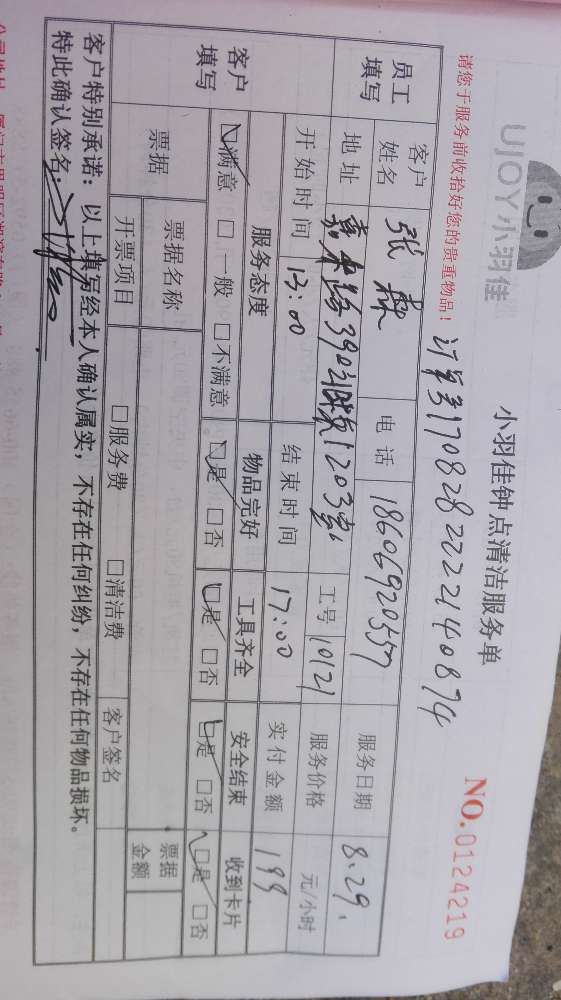 UJOY小羽佳
小羽佳钟点清洁服务单
NO.0124219
请您于服务前收拾好您的贵重物品！
订单号170828222140874
员工填写
客户姓名 张 电话 18606920557 服务日期 8.29.
地址 嘉禾路390号 1203室 工号 10121 服务价格 元/小时
开始时间 13:00 结束时间 17:00 实付金额 199
客户填写
服务态度 物品完好 工具齐全 安全结束 收到卡片
☑满意 □一般 □不满意 ☑是 □否 ☑是 □否 ☑是 □否 ☑是 □否
票据 票据名称 票据金额
开票项目 □服务费 □清洁费 客户签名
客户特别承诺：以上填写经本人确认属实，不存在任何纠纷，不存在任何物品损坏。
特此确认签名：